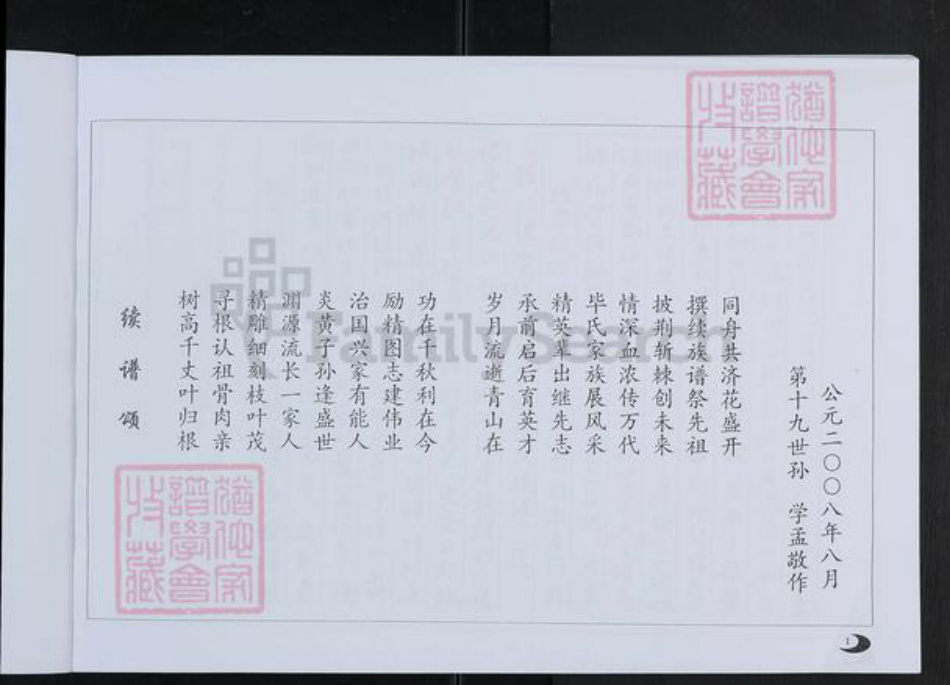 续谱颂
树高千丈叶归根
寻根认祖骨肉亲
精雕细刻枝叶茂
渊源流长一家人
炎黄子孙逢盛世
治国兴家有能人
励精图志建伟业
功在千秋利在今
岁月流逝青山在
承前启后育英才
精英辈出继先志
毕氏家族展风采
情深血浓传万代
披荆斩棘创未来
撰续族谱祭先祖
同舟共济花盛开
第十九世孙 学孟敬作
公元二〇〇八年八月
猶他家
譜學會
收藏
猶他家
譜學會
收藏
FamilySearch
1